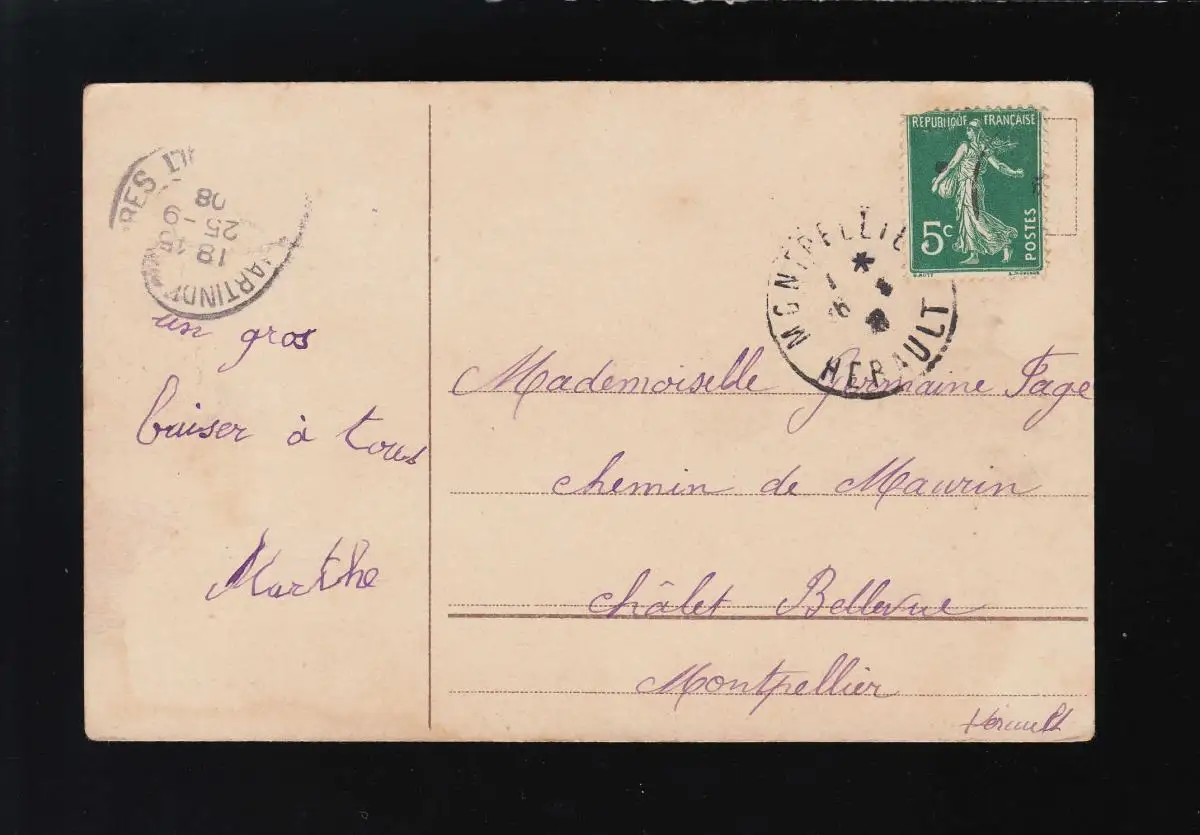 18 15
25 - 9
08
un gros
baiser à tous
Marthe
REPUBLIQUE FRANÇAISE
5c
POSTES
MONTPELLIE
HERAULT
Mademoiselle Germaine Page
chemin de Maurin
châlet Bellevue
Montpellier
Herault